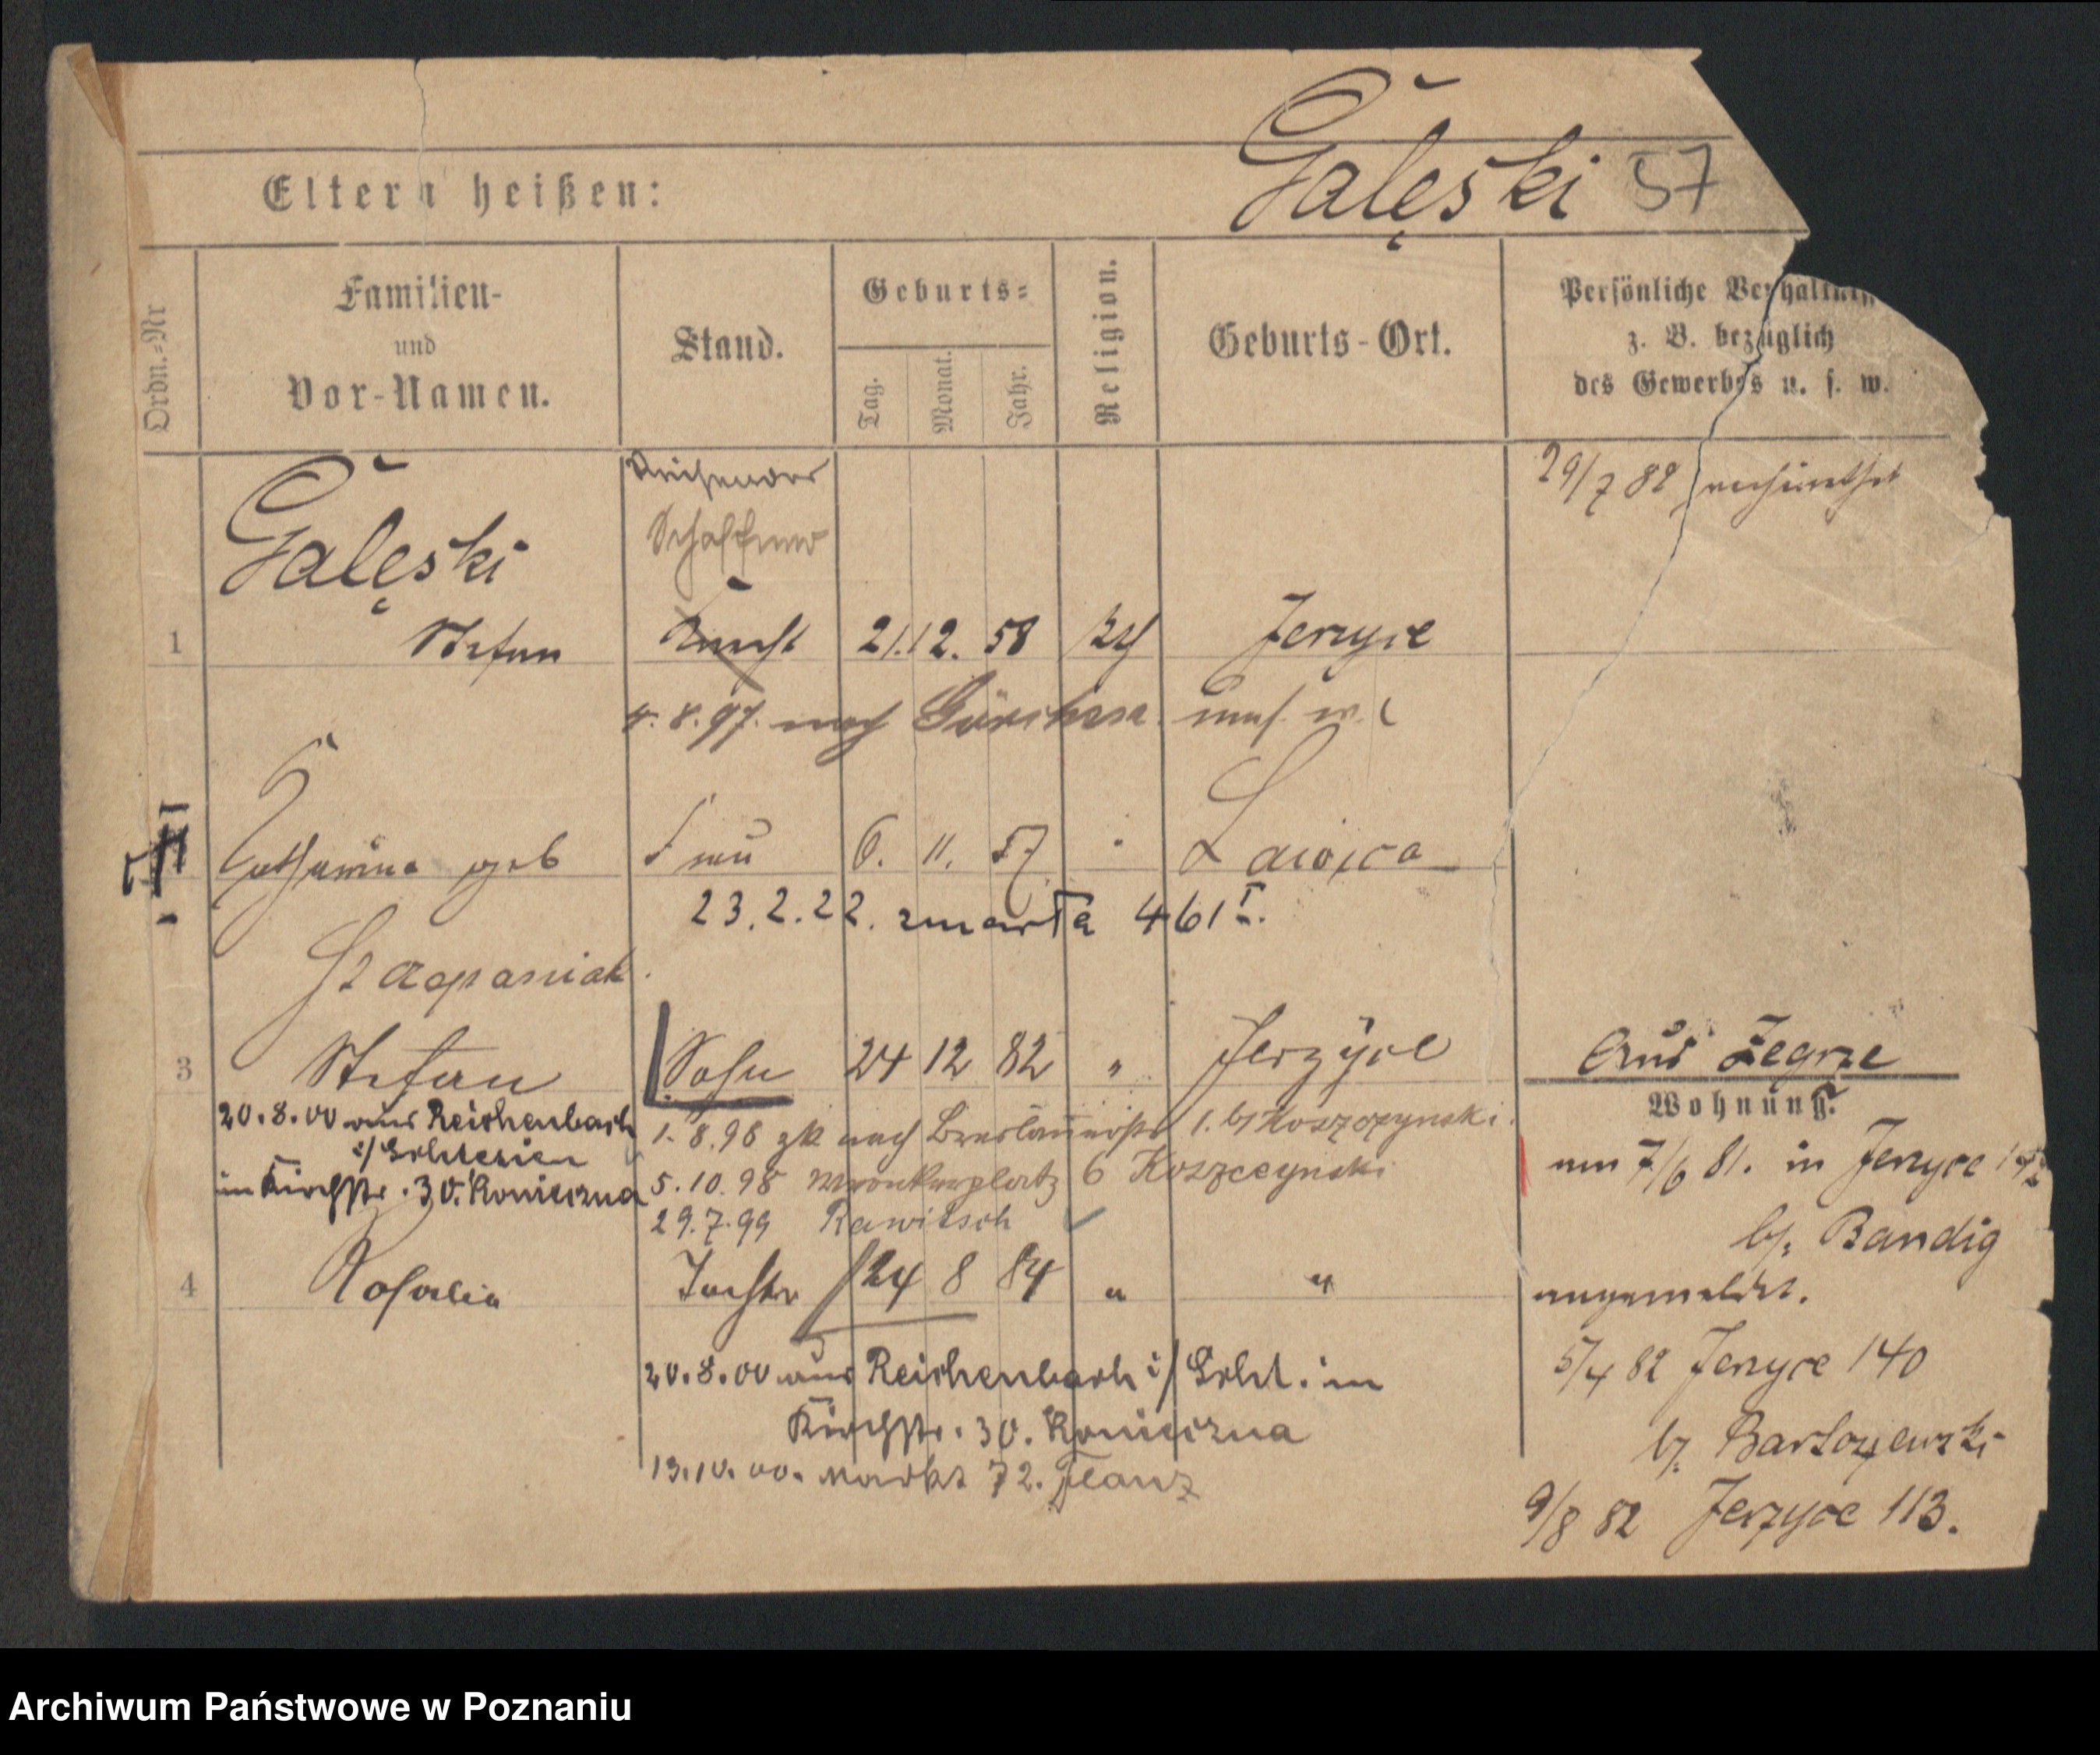 Gałęski 57
Eltern heißen:
Ordn.-Nr
Familien-
und
Vor-Namen.
Stand.
Geburts-
Tag.
Monat.
Jahr.
Religion.
Geburts-Ort.
Persönliche Verhältn
z. B. bezüglich
des Gewerbes u. s. w.
Gałęski
Reisender
Schaffner
29/7 82 verheirathet
1 Stefan Knecht 21.12. 58 kth Jerzyce
4. 8. 97. nach Görchen
Catharina geb Frau 6. 11. 57 Ławica
23.2.22. zmarła 461 I.
Szczepaniak
3 Stefan Sohn 24 12 82 " Jerzyce
20.8.00 aus Reichenbach
i/Schlesien
in Kirchstr. 30. Konieczna
1. 8. 98 zk nach Breslauerstr 1. bj Koszczynski.
5.10.98 Wronkerplatz 6 Koszczynski
29.7.99 Rawitsch
4 Rosalia Tochter 24 8 84 " "
20.8.00 aus Reichenbach i/Schl. in
Kirchstr. 30. Konieczna
13.10.00. Markt 72.
Aus Żegrze
Wohnung.
am 7/6 81. in Jerzyce
bj. Bandig
angemeldet.
5/4 82 Jerzyce 140
bj.
9/8 82 Jerzyce 113.
Archiwum Państwowe w Poznaniu